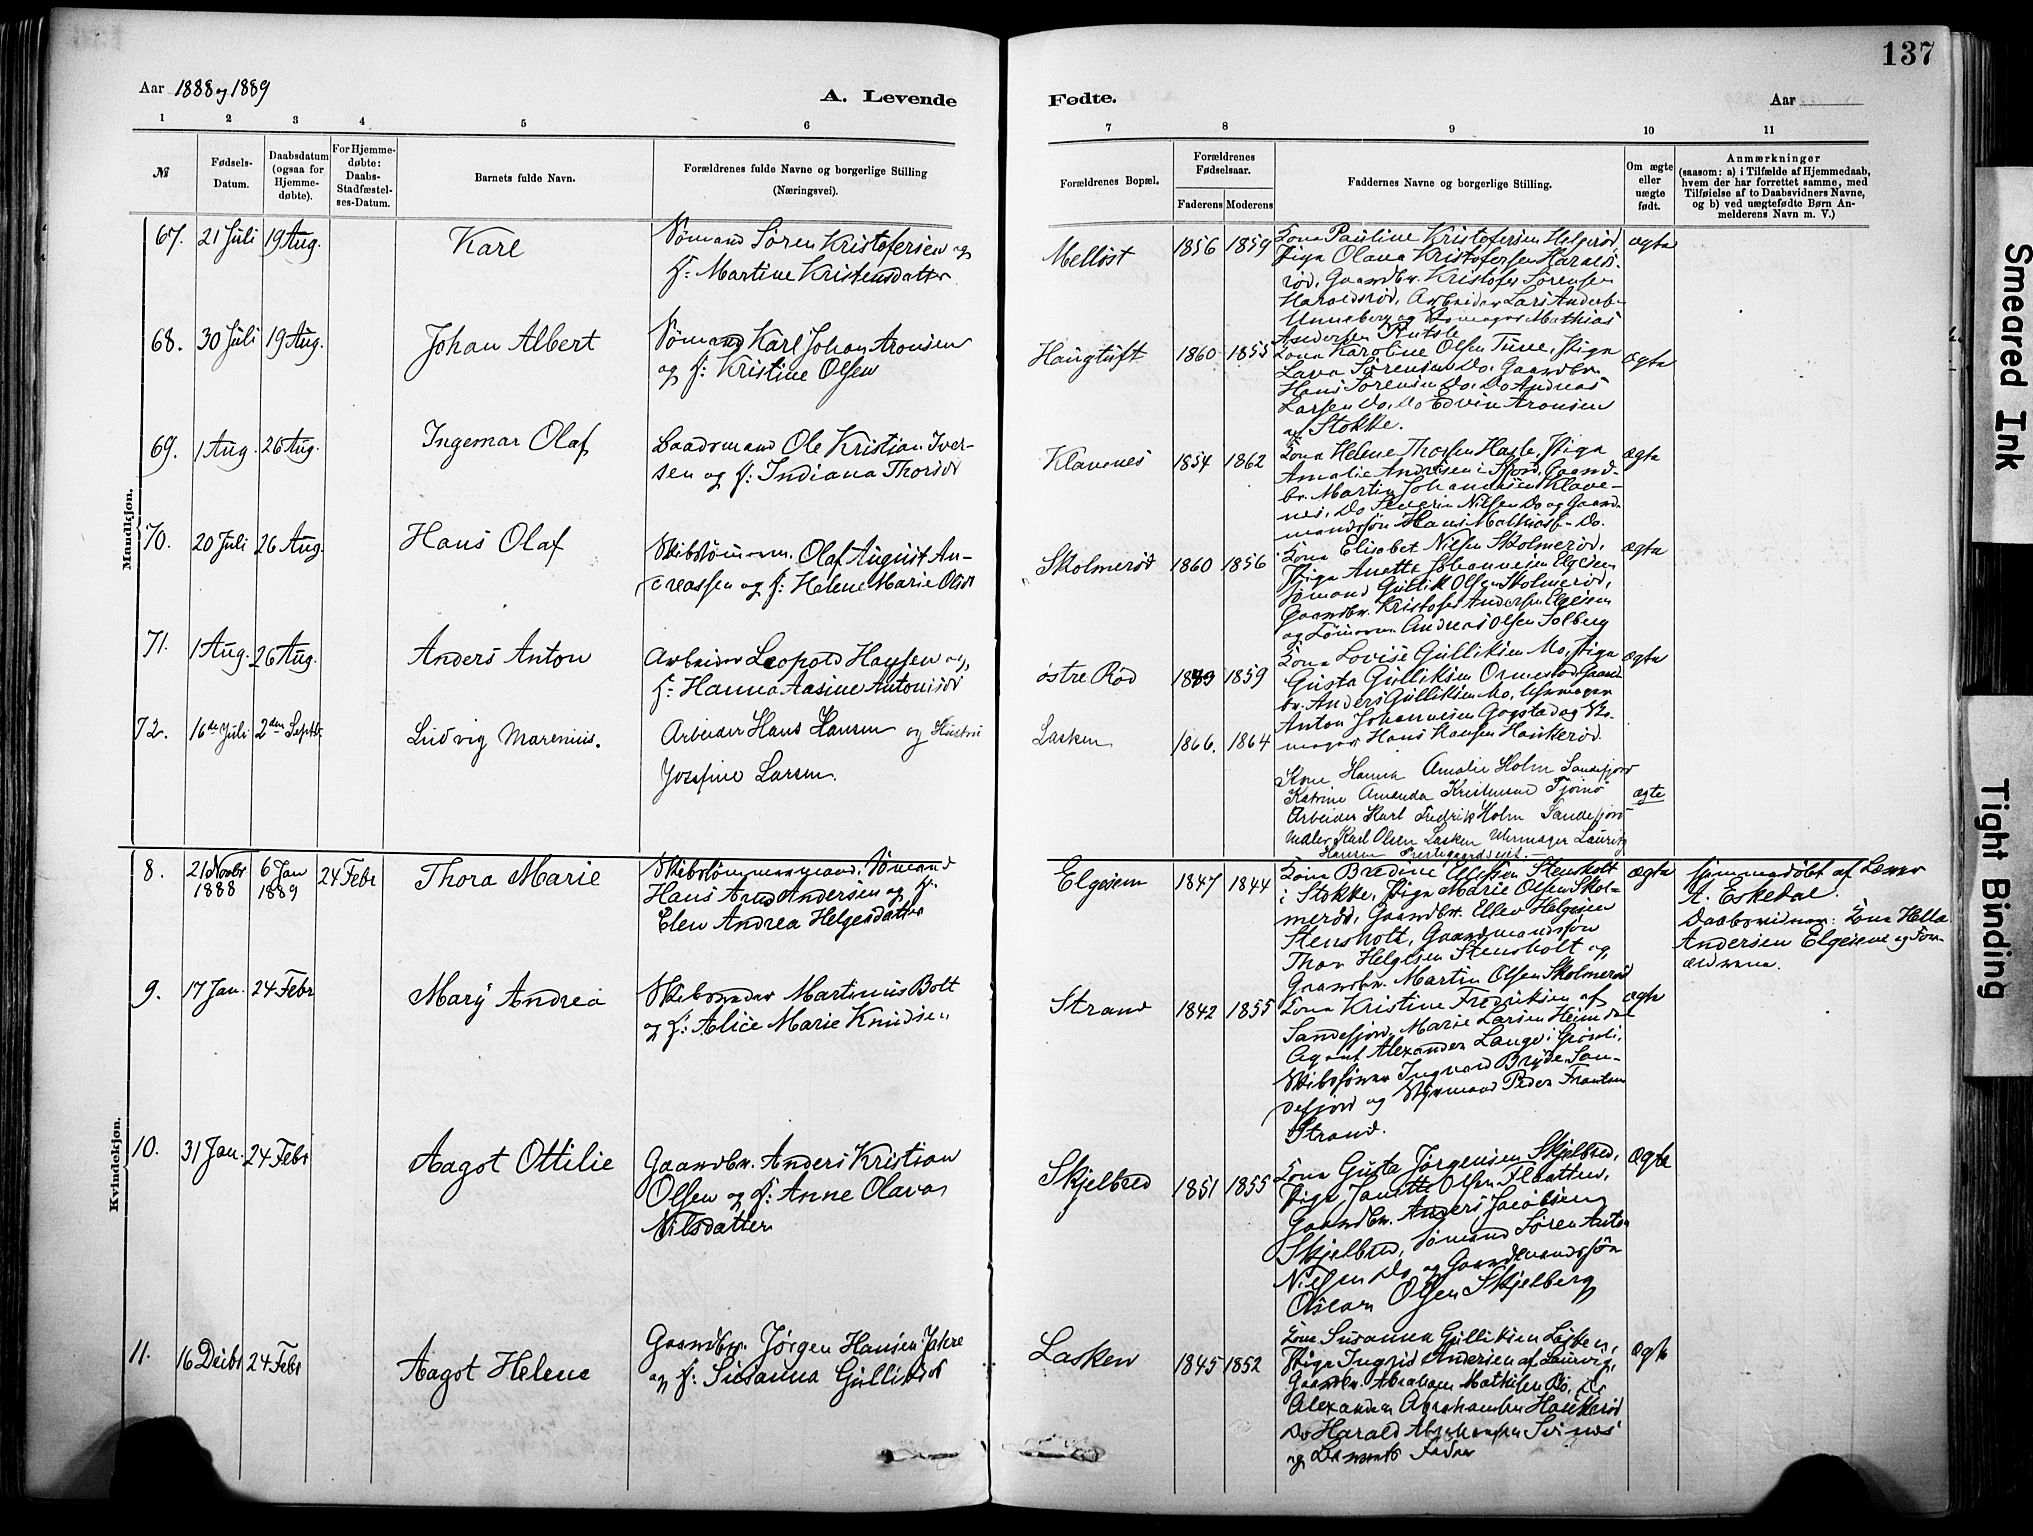 137
Aar 1888 og 1889
A. Levende
Fødte.
Aar
1 2 3 4 5 6 7 8 9 10 11
№
Fødsels-Datum.
Daabsdatum (ogsaa for Hjemme-døbte).
For Hjemme-døbte: Daabs-Stadfæstel-ses-Datum.
Barnets fulde Navn.
Forældrenes fulde Navne og borgerlige Stilling
(Næringsvei).
Forældrenes Bopæl.
Forældrenes Fødselsaar.
Faderens Moderens
Faddernes Navne og borgerlige Stilling.
Om ægte eller uægte født.
Anmærkninger
(saasom: a) i Tilfælde af Hjemmedaab,
hvem der har forrettet samme, med
Tilføielse af to Daabsvidners Navne,
og b) ved uægtefødte Børn An-
melderens Navn m. V.)
Mandkjøn.
67. 21 Juli 19 Aug. Karl
Sømand Søren Kristofersen og
f: Martine Kristensdatter
Melløst 1856 1859
Kona Pauline Kristofersen Helgerød,
Pige Olava Kristofersen Haralds-
rød, Gaardbr. Kristofer Sørensen
Haraldsrød, Arbeider Lars Anders-
Unneberg og Skomager Mathias
Andersen
ægte
68. 30 Juli 19 Aug. Johan Albert
Sømand Karl Johan Aronsen
og f: Kristine Olsen
Haugtuft 1860 1855
Kona Karoline Olsen Tuve, Pige
Lava Sørensen Do, Gaardbr.
Hans Sørensen Do, Do Andreas
Larsen Do, Do Edvin Aronsen
af Stokke.
ægte
69. 1 Aug. 26 Aug. Ingemar Olaf
Baadsmand Ole Kristian Iver-
sen og f: Indiana Thorsdt
Klavenes 1854 1862
Kona Helene Thorsen Hasle, Pige
Amalie Andersen i Fjord, Gaard-
br. Martin Johannesen Klave-
nes, Do Severin Nilsen Do og Gaard-
mandssøn Hans Mathias- Do.
ægte
70. 20 Juli 26 Aug. Hans Olaf
Skibstømmerm. Olaf August An-
dreassen og f: Helene Marie Olsdt
Skolmerød 1860 1856
Kona Elisabet Nilsen Skolmerød,
Pige Anette Johannesen Elgesem
Sømand Gullik Olsen Skolmerød,
Gaardbr. Kristofer Andersen Elgesem
og Tømmerm. Andreas Olsen Solberg
ægte
71. 1 Aug. 26 Aug. Anders Anton
Arbeider Leopold Hansen og
f: Hanna Aasine Antonisdt
østre Rød 1859
Kona Lovise Gulliksen Mo, Pige
Gusta Gulliksen Ormestad, Gaard-
br. Anders Gulliksen Mo, Uhrmager
Anton Johannesen Gogstad og Sko-
mager Hans Hansen Haukerød.
ægte
72. 16de Juli 2den Septb. Ludvig Marenius.
Arbeider Hans Hansen og Hustru
Josefine Larsen.
Lasken 1866. 1864
Kone Hanna Amalie Holm Sandefjord
Katrine Amanda Kristensen Tjømø
Arbeider Karl Fredrik Holm Sandefjord
Maler Karl Olsen Lasken Uhrmager Lauritz
Hansen Prestegaardseiet.
ægte
Kvindekjøn.
8. 21 Novbr 1888 6 Jan 1889 24 Febr Thora Marie
Skibstømmermand, Sømand
Hans Andersen og f:
Elen Andrea Helgesdatter
Elgesem 1847 1844
Kona Bredine Ellefsen Stensholt
i Stokke, Pige Marie Olsen Skol-
merød, Gaardbr. Ellev Helgesen
Stensholt, Gaardmandssøn
Thor Helgesen Stensholt og
Gaardbr. Martin Olsen Skolmerød
ægte
hjemmedøbt af Lærer
A. Eskedal.
Daabsvidner: Kona Hella
Andersen Elgesem og For-
ældrene.
9. 17 Jan. 24 Febr Mary Andrea
Skibsreder Martinius Bolt
og f: Alice Marie Knudsen
Strand 1842 1855
Kona Kristine Fredriksen af
Sandefjord, Marie Larsen Heimdal
Agent Alexander Lange i Grimli,
Skibsfører Ingvard Bryde San-
defjord og Styrmand Peder Frantsen
Strand.
ægte
10. 31 Jan. 24 Febr Aagot Ottilie
Gaardbr. Anders Kristian
Olsen og f: Anne Olava
Nilsdatter
Skjelbred 1851 1855
Kona Gusta Jørgensen Skjelbred,
Pige Janette Olsen Flaatten,
Gaardbr. Anders Jacobsen
Skjelbred, Sømand Søren Anton
Nielsen Do og Gaardmandssøn
Oscar Olsen Skjelberg
ægte
11. 16 Decbr 24 Febr Aagot Helene
Gaardbr. Jørgen Hansen Jahre
og f: Susanna Gulliksdt
Lasken 1845 1852
Kona Susanna Gulliksen Lasken,
Pige Ingrid Andersen af Laurvig,
Gaardbr. Abraham Mathisen Bø, Do
Alexander Abrahamsen Haukerød
Do Harald Abrahamsen Svines
og Barnets Fader
ægte
Smeared Ink
Tight Binding